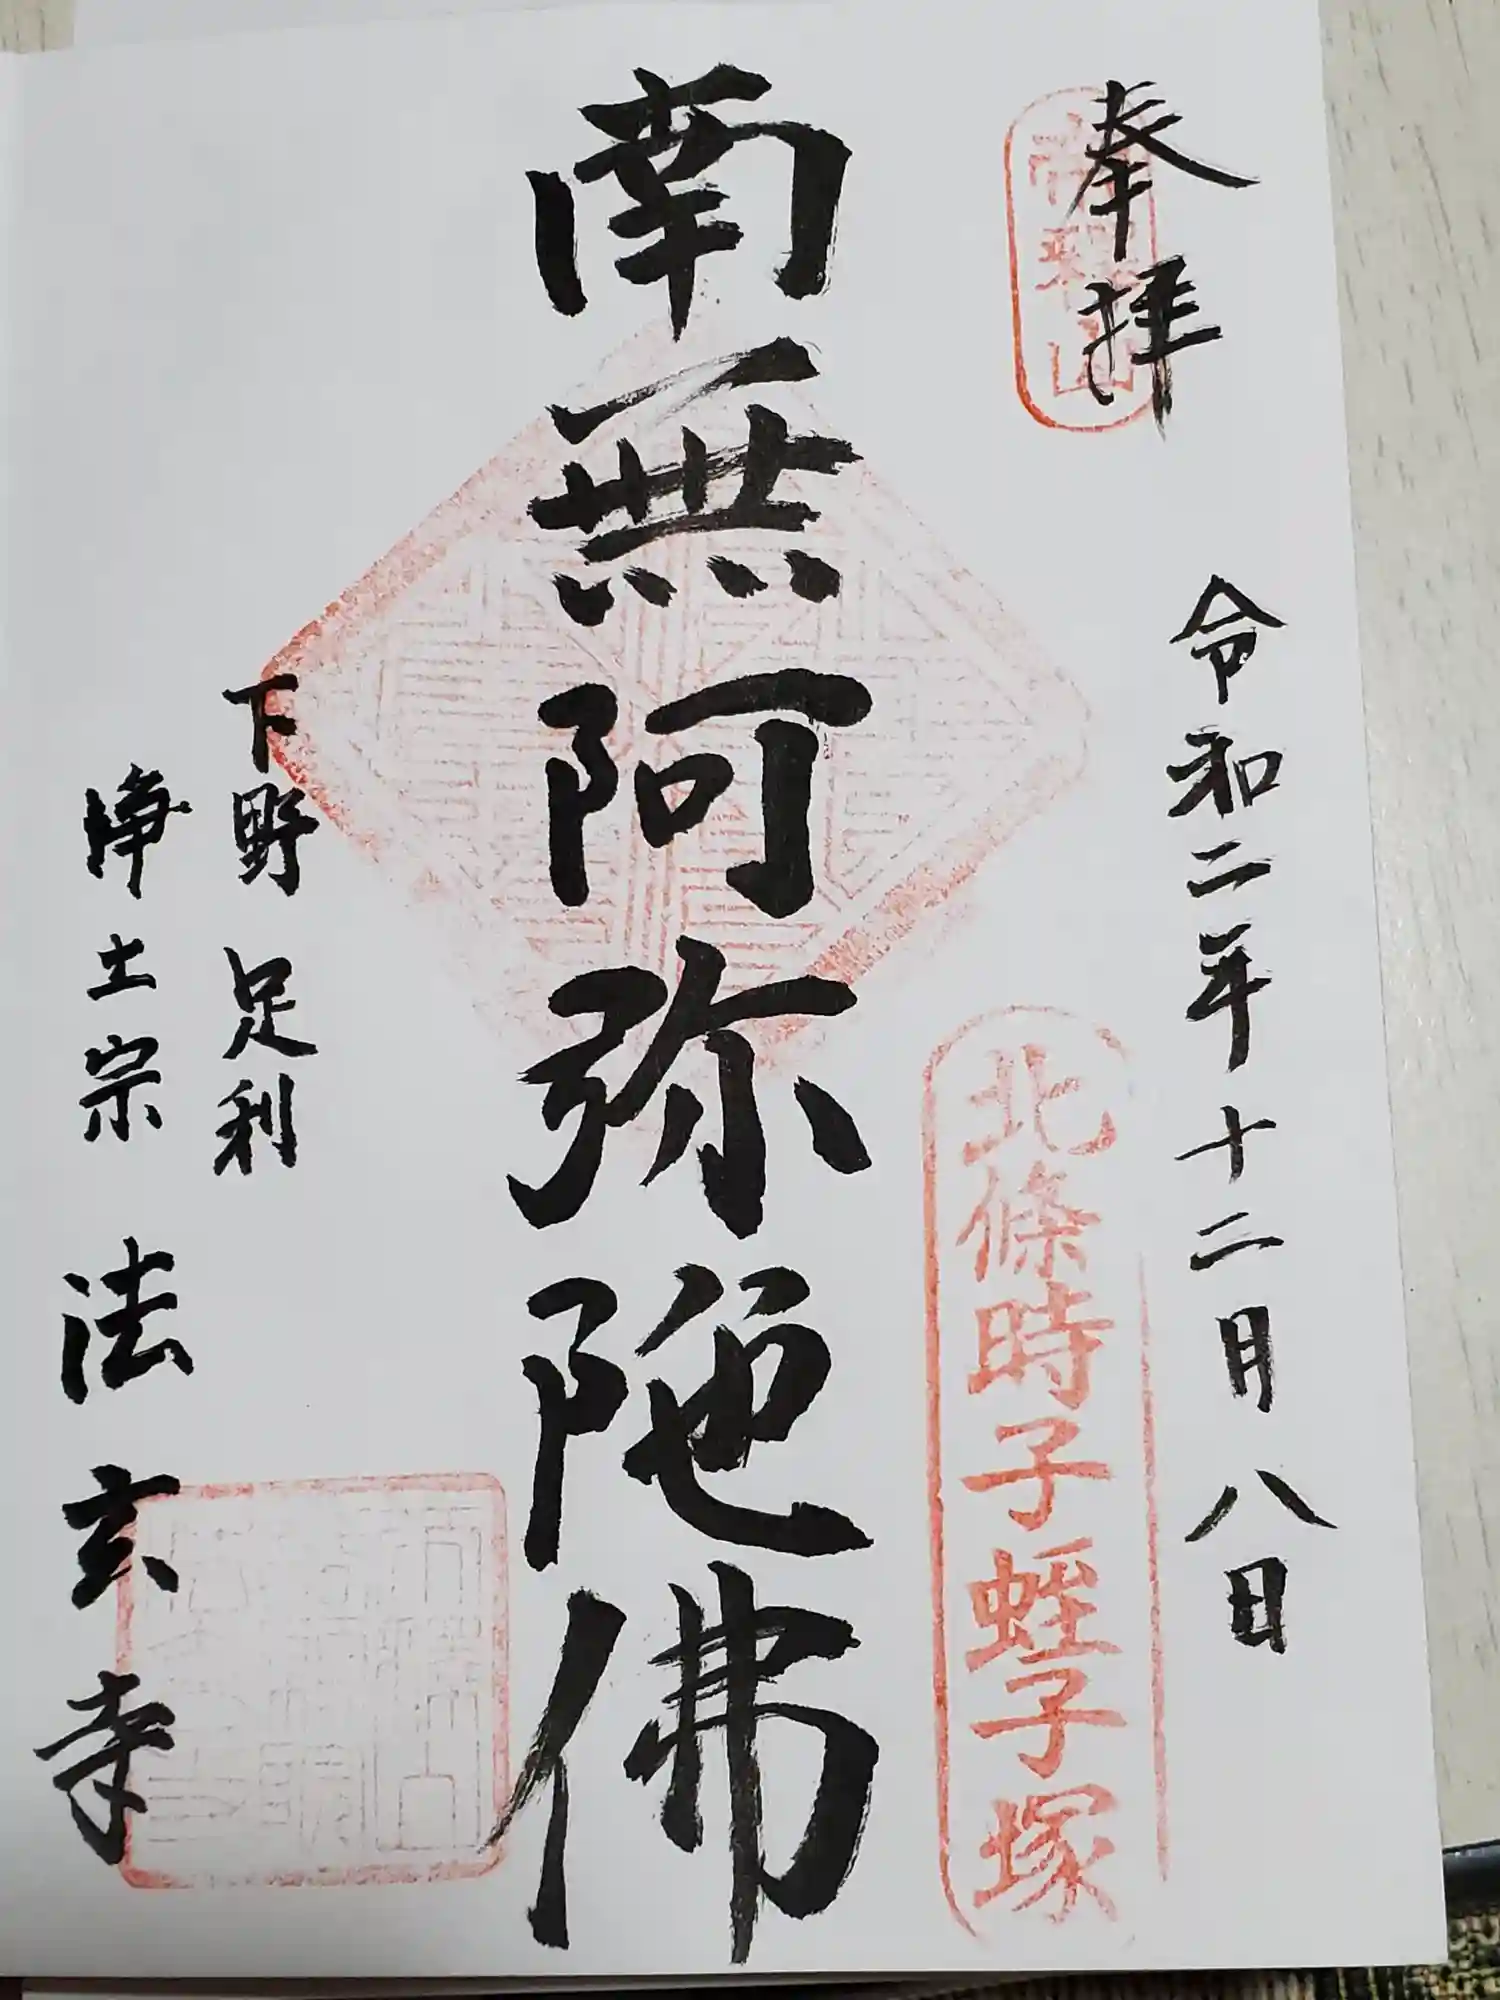 奉拝
令和二年十二月八日
北條時子蛭子塚
南無阿弥陀佛
下野足利
浄土宗
法玄寺